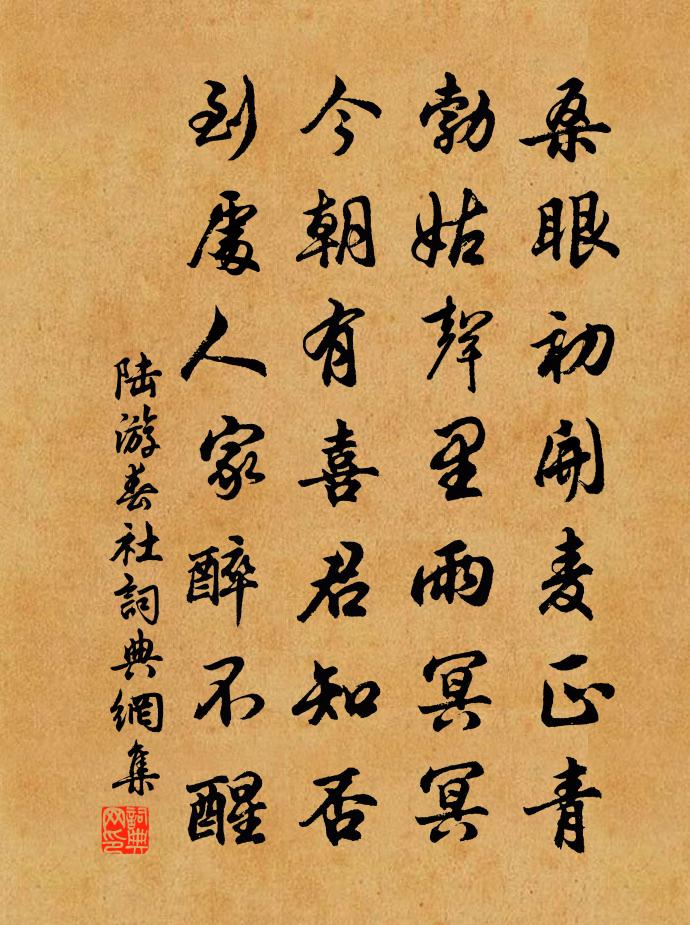 桑眼初開麦正青
勃姑聲里雨冥冥
今朝有喜君知否
到處人家醉不醒
陆游春社詞典網集
詞典网印